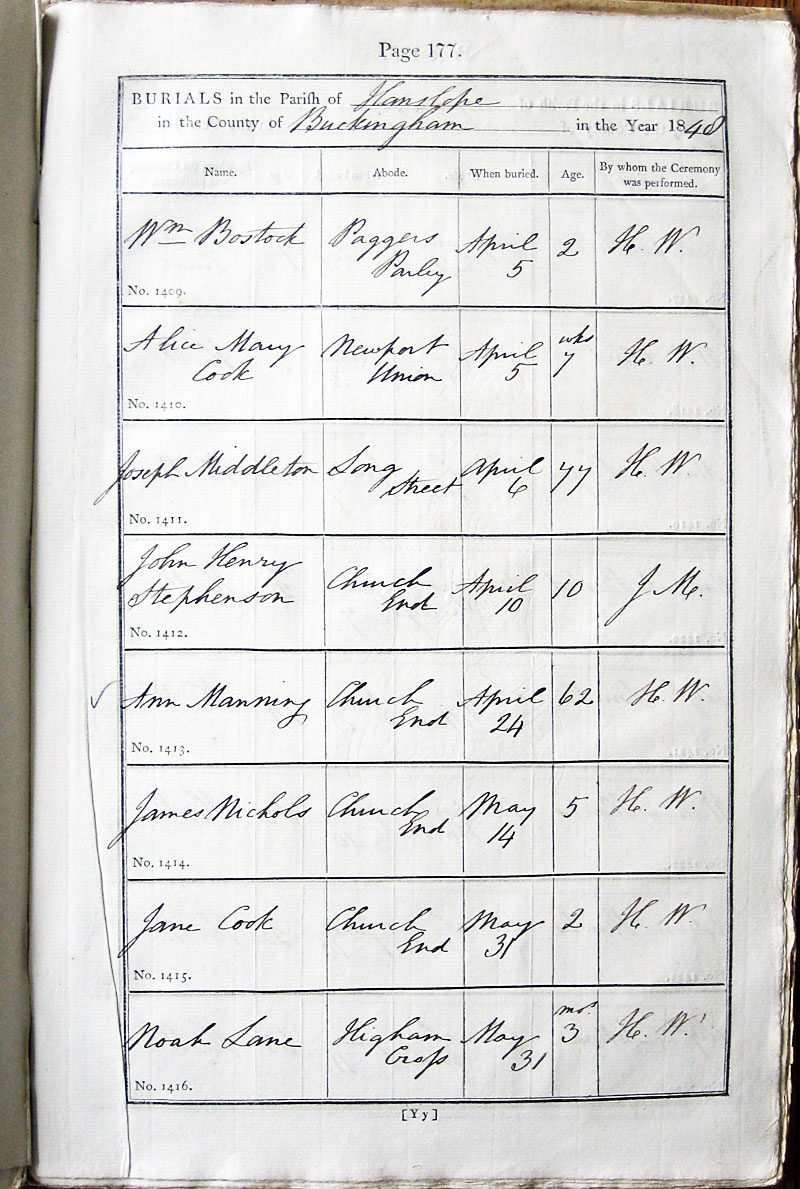 Page 177.
BURIALS in the Parish of Hanslope
in the County of Buckingham in the Year 1848
Name. Abode. When buried. Age. By whom the Ceremony was performed.
Wm Bostock Paggers April 2 H. W.
Parley 5
No. 1409.
Alice Mary Newport April wks H. W.
Cook Union 5 7
No. 1410.
Joseph Middleton Long April 77 H. W
Street 6
No. 1411.
John Henry Church April 10 J M.
Stephenson End 10
No. 1412.
Ann Manning Church April 62 H. W.
End 24
No. 1413.
James Nichols Church May 5 H. W.
End 14
No. 1414.
Jane Cook Church May 2 H. W.
End 31
No. 1415.
Noah Lane Higham May mos. 3 H. W.
Cross 31
No. 1416.
[Yy]